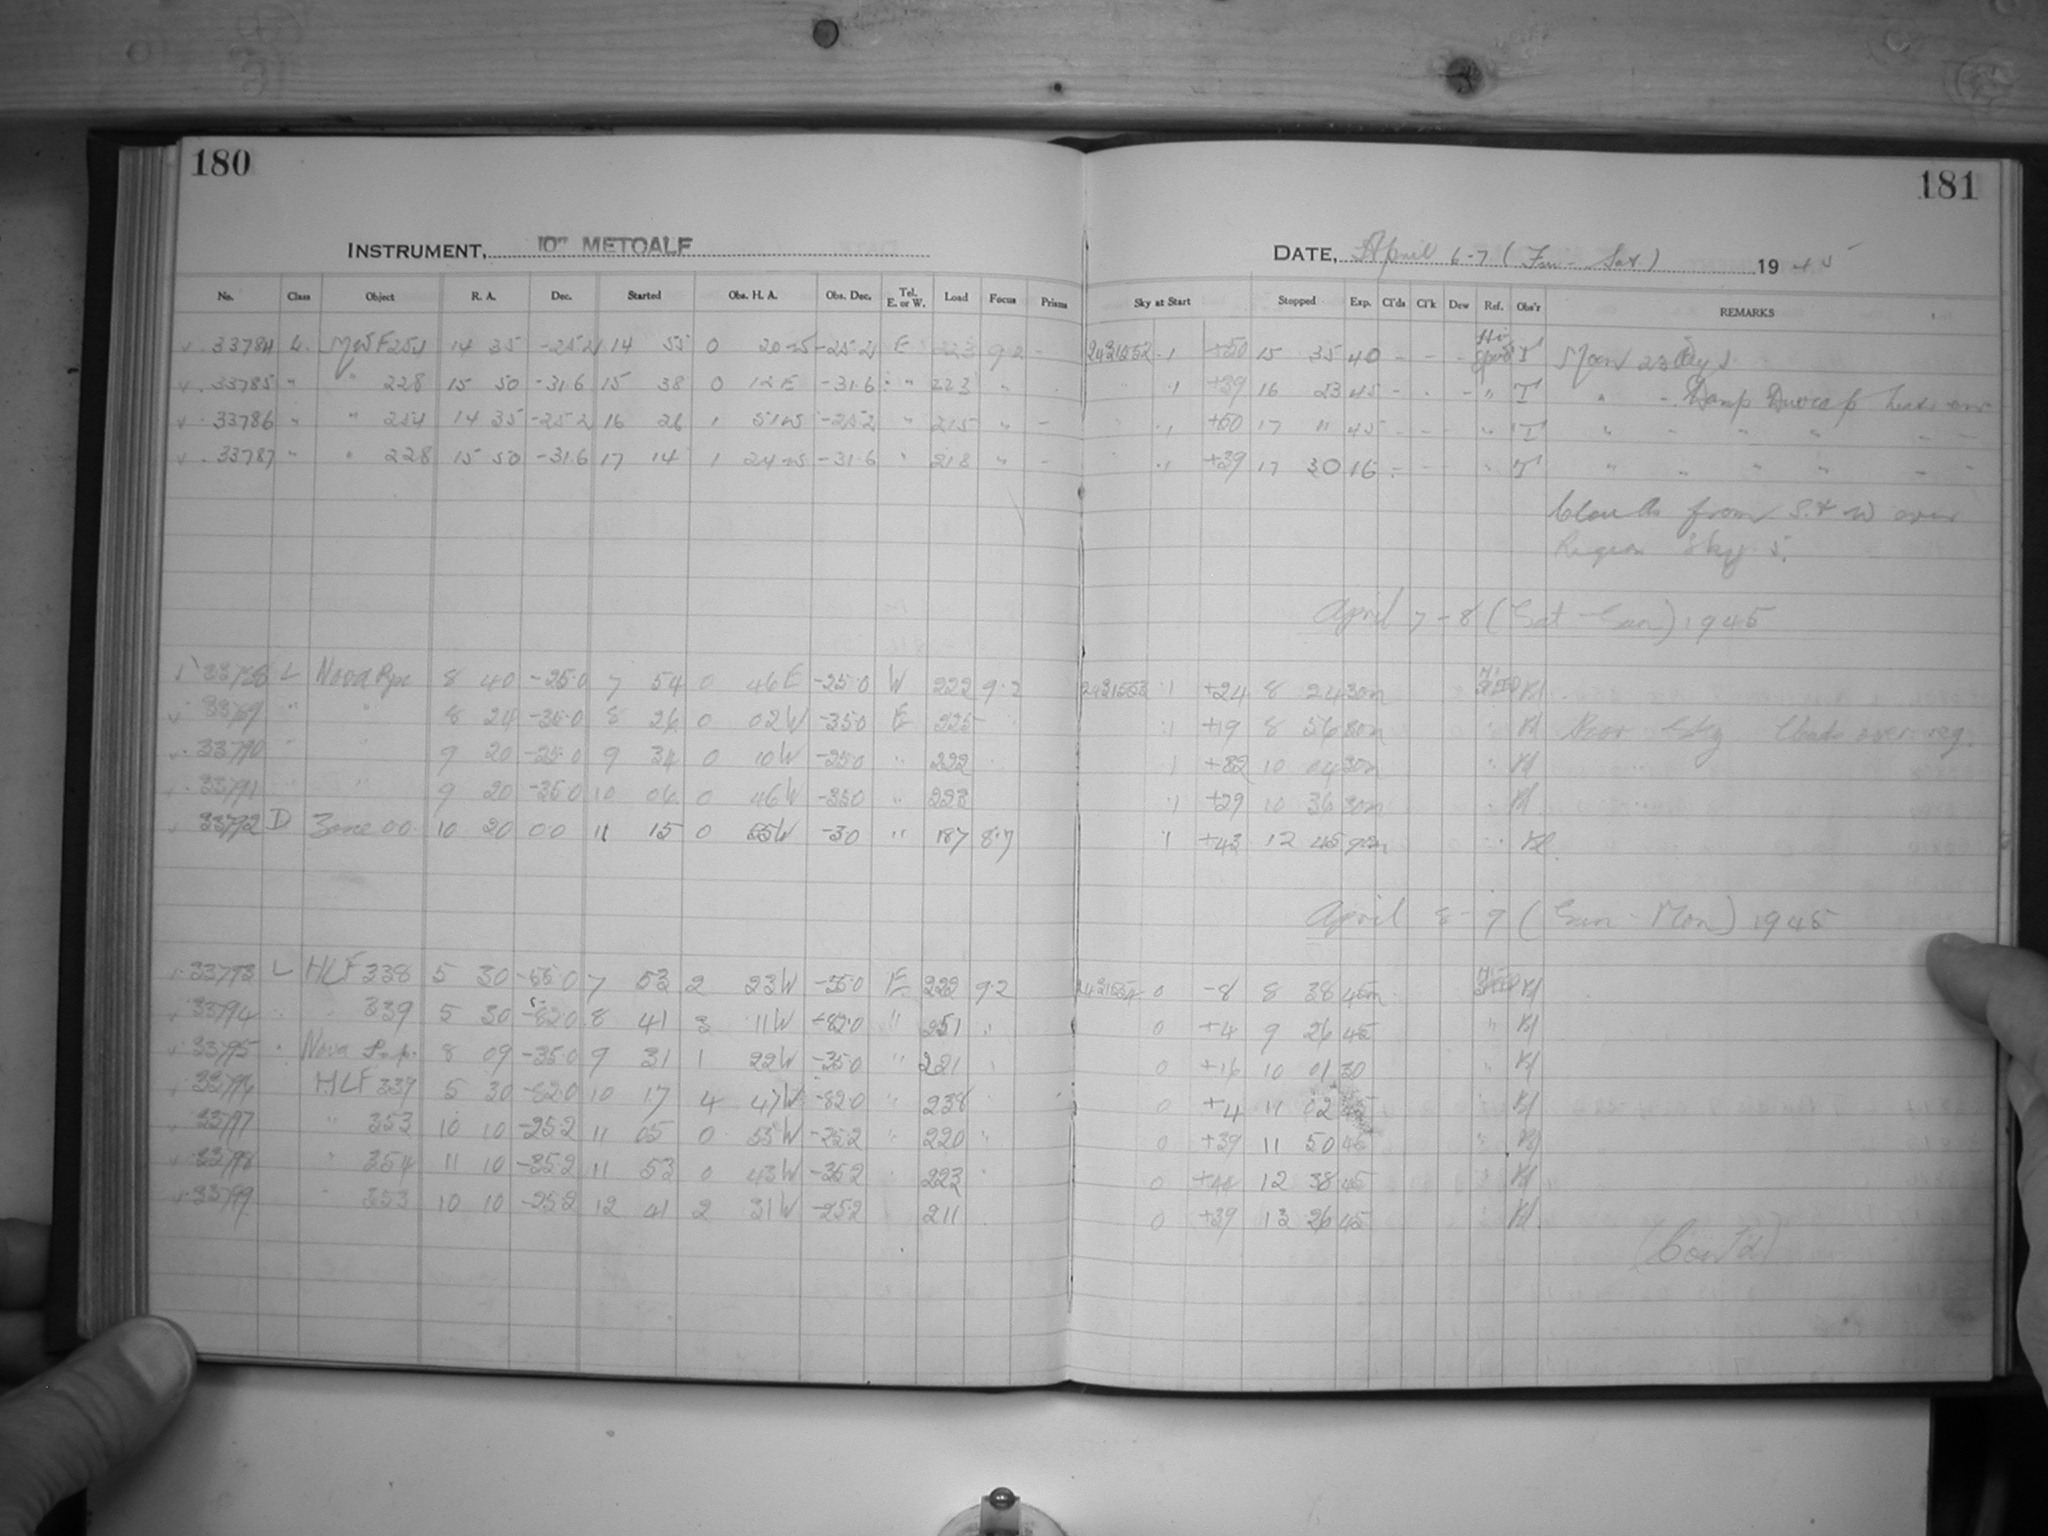 180
181
INSTRUMENT, 10" METCALF
DATE, April 6-7 (Fri - Sat) 1945
No. Class Object R. A. Dec. Started Obs. H. A. Obs. Dec. Tel. E. or W. Load Focus Prisms Sky at Start Stopped Exp. Cl'ds Cl'k Dew Ref. Obs'r REMARKS
33784 L. MWF 254 14 35 -25.2 14 55 0 20 W -25.2 E 223 9.2 - 2431552 .1 +50 15 35 40 - - - Hi speed T Moon 23 days
33785 " " 228 15 50 -31.6 15 38 0 12 E -31.6 " 223 " .1 +39 16 23 45 - - - " T " - Damp
33786 " " 254 14 35 -25.2 16 26 1 51 W -25.2 " 215 " - .1 +50 17 11 45 - - - " T " " " "
33787 " " 228 15 50 -31.6 17 14 1 24 W -31.6 " 218 " - .1 +39 17 30 16 - - - " T " " " "
Clouds from S. & W over
Region Sky 5.
April 7-8 (Sat - Sun) 1945
33788 L Nova Pup 8 40 -25.0 7 54 0 46 E -25.0 W 222 9.2 2431553 .1 +24 8 24 30m Hi speed Bl
33789 " " 8 24 -35.0 8 26 0 02 W -35.0 E 225 .1 +19 8 56 30m " Bl Poor Sky Clouds over reg.
33790 " " 9 20 -25.0 9 34 0 10 W -25.0 " 222 .1 +32 10 04 30m " Bl
33791 " " 9 20 -35.0 10 06 0 46 W -35.0 " 223 .1 +29 10 36 30m " Bl
33792 D Zone 00 10 20 00 11 15 0 55 W -3.0 " 187 8.7 .1 +43 12 45 90m " Bl
April 8-9 (Sun - Mon) 1945
33793 L HLF 338 5 30 -55.0 7 53 2 23 W -55.0 E 222 9.2 2431554 0 -8 8 38 45m Hi speed Bl
33794 " " 339 5 30 -82.0 8 41 3 11 W -82.0 " 251 " 0 +4 9 26 45 " Bl
33795 " Nova Pup. 8 09 -35.0 9 31 1 22 W -35.0 " 221 " 0 +16 10 01 30 " Bl
33796 HLF 339 5 30 -82.0 10 17 4 47 W -82.0 " 238 0 +4 11 02 45 " Bl
33797 " 353 10 10 -25.2 11 05 0 55 W -25.2 " 220 " 0 +39 11 50 45 " Bl
33798 " 354 11 10 -35.2 11 53 0 43 W -35.2 " 223 " 0 12 38 45 " Bl
33799 " 353 10 10 -25.2 12 41 2 31 W -25.2 211 0 +39 13 26 45 " Bl
(Cont'd)